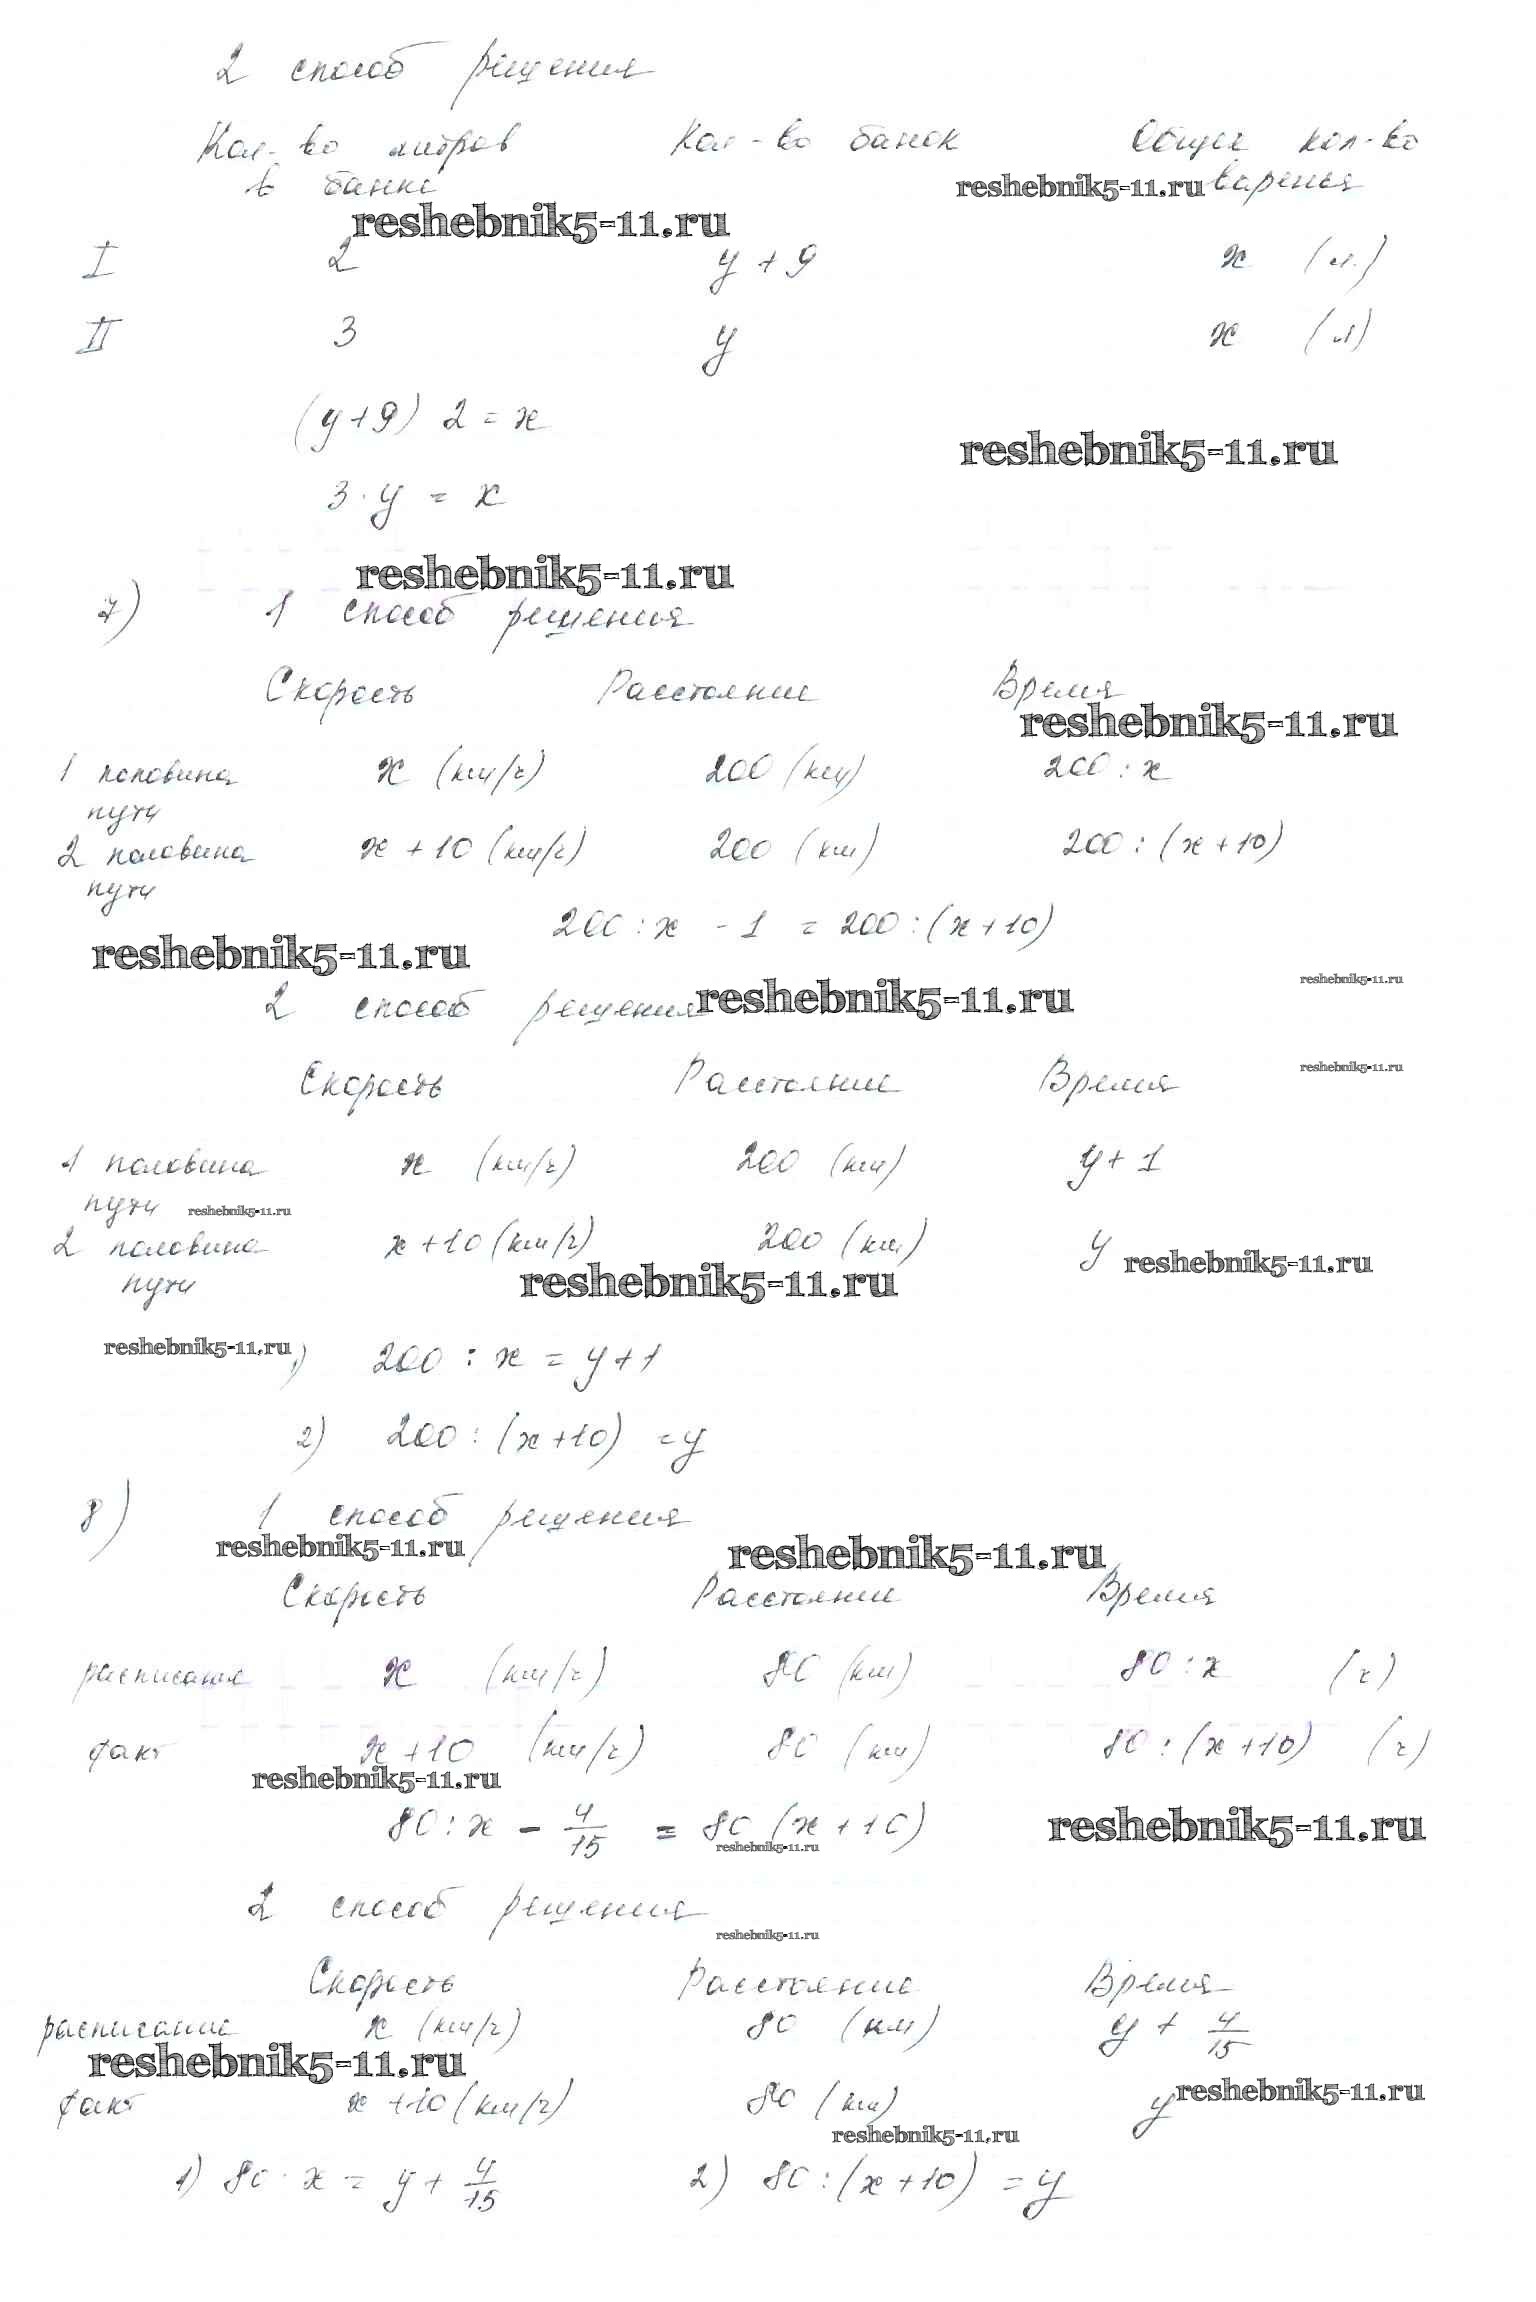 2 способ решения
Кол-во литров Кол-во банок Общее кол-во
в банке reshebnik5-11.ru варенья
reshebnik5-11.ru
I 2 y + 9 x (л.)
II 3 y x (л)
(y+9) 2 = x
reshebnik5-11.ru
3 · y = x
reshebnik5-11.ru
7) 1 способ решения
Скорость Расстояние Время
reshebnik5-11.ru
1 половина x (км/ч) 200 (км) 200 : x
пути
2 половина x + 10 (км/ч) 200 (км) 200 : (x+10)
пути
200 : x - 1 = 200 : (x+10)
reshebnik5-11.ru
reshebnik5-11.ru
2 способ решения reshebnik5-11.ru
reshebnik5-11.ru
Скорость Расстояние Время
1 половина x (км/ч) 200 (км) y + 1
пути reshebnik5-11.ru
2 половина x+10 (км/ч) 200 (км) y reshebnik5-11.ru
пути reshebnik5-11.ru
reshebnik5-11.ru
1) 200 : x = y+1
2) 200 : (x+10) = y
8) 1 способ решения
reshebnik5-11.ru reshebnik5-11.ru
Скорость Расстояние Время
расписание x (км/ч) 80 (км) 80 : x (ч)
факт x +10 (км/ч) 80 (км) 80 : (x+10) (ч)
reshebnik5-11.ru
80 : x - 4/15 = 80 (x+10) reshebnik5-11.ru
reshebnik5-11.ru
2 способ решения
reshebnik5-11.ru
Скорость Расстояние Время
расписание x (км/ч) 80 (км) y + 4/15
reshebnik5-11.ru
факт x +10 (км/ч) 80 (км) y reshebnik5-11.ru
reshebnik5-11.ru
1) 80 · x = y + 4/15 2) 80 : (x+10) = y